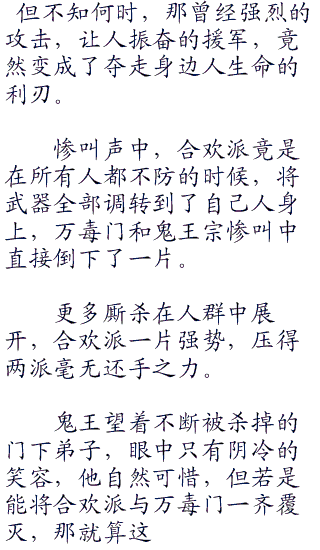 但不知何时，那曾经强烈的
攻击，让人振奋的援军，竟
然变成了夺走身边人生命的
利刃。
惨叫声中，合欢派竟是
在所有人都不防的时候，将
武器全部调转到了自己人身
上，万毒门和鬼王宗惨叫中
直接倒下了一片。
更多厮杀在人群中展
开，合欢派一片强势，压得
两派毫无还手之力。
鬼王望着不断被杀掉的
门下弟子，眼中只有阴冷的
笑容，他自然可惜，但若是
能将合欢派与万毒门一齐覆
灭，那就算这